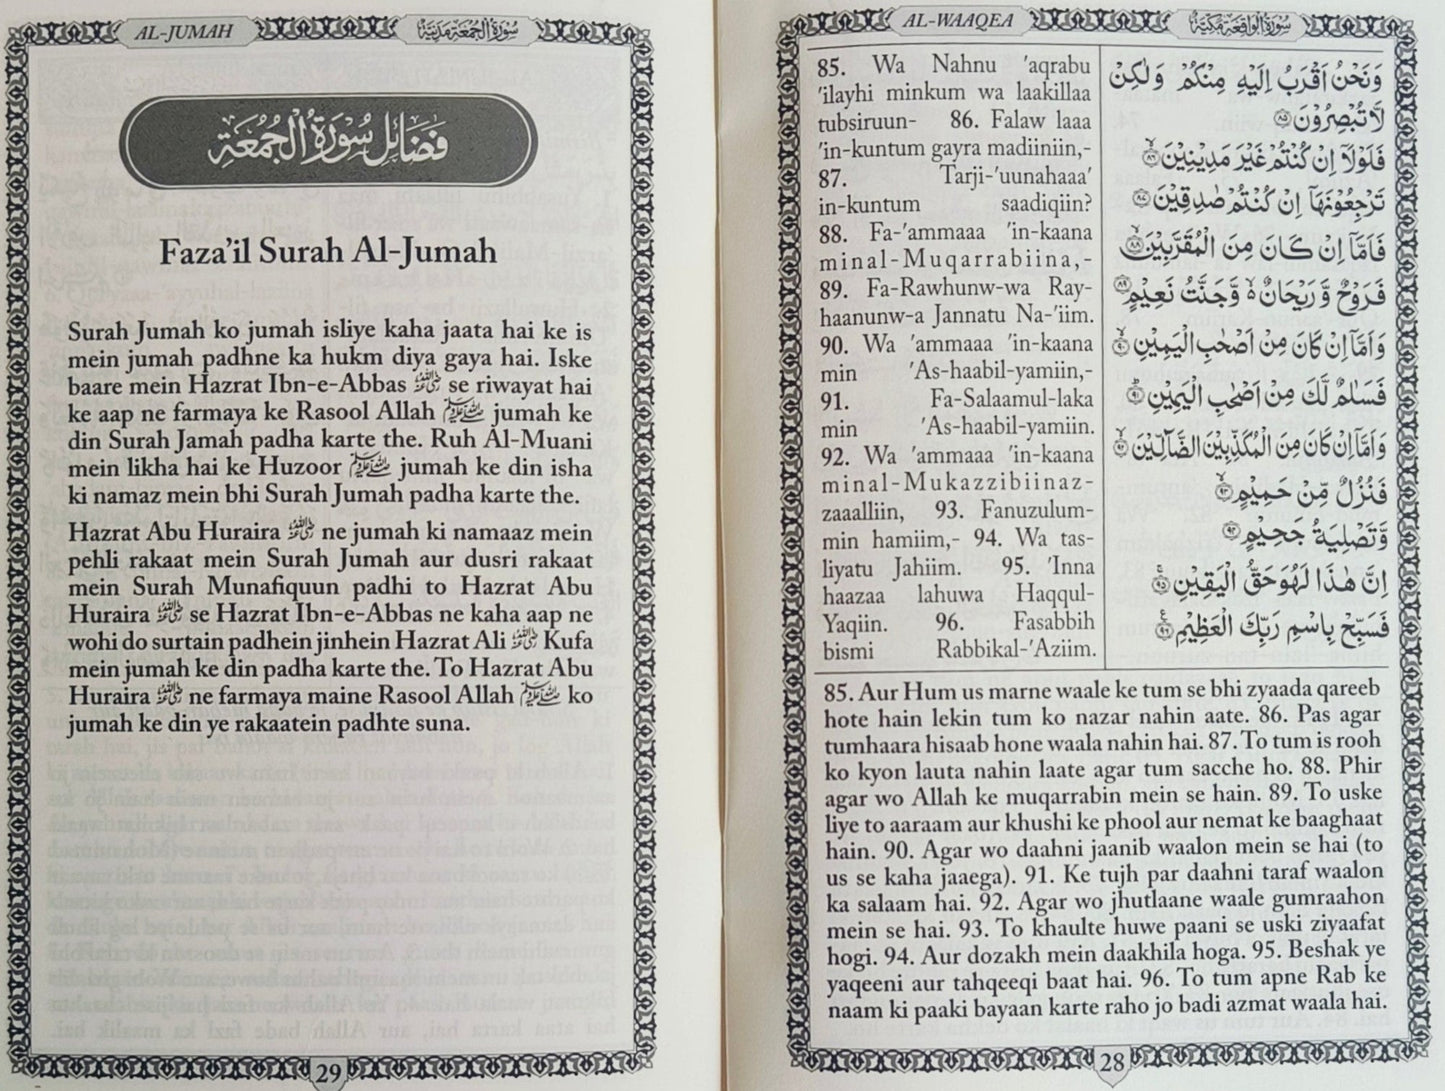 AL-WAAQEA
سُورَةُ الْوَاقِعَة مَكِّيَّة
85. Wa Nahnu 'aqrabu
'ilayhi minkum wa laakillaa
tubsiruun- 86. Falaw laaa
'in-kuntum gayra madiiniin,-
87. Tarji-'uunahaaa'
in-kuntum saadiqiin?
88. Fa-'ammaaa 'in-kaana
minal-Muqarrabiina,-
89. Fa-Rawhunw-wa Ray-
haanunw-a Jannatu Na-'iim.
90. Wa 'ammaaa 'in-kaana
min 'As-haabil-yamiin,-
91. Fa-Salaamul-laka
min 'As-haabil-yamiin.
92. Wa 'ammaaa 'in-kaana
minal-Mukazzibiinaz-
zaaalliin, 93. Fanuzulum-
min hamiim,- 94. Wa tas-
liyatu Jahiim. 95. 'Inna
haazaa lahuwa Haqqul-
Yaqiin. 96. Fasabbih
bismi Rabbikal-'Aziim.
وَنَحْنُ اَقْرَبُ اِلَيْهِ مِنْكُمْ وَلٰكِنْ
لَّا تُبْصِرُوْنَ ۝۸۵
فَلَوْلَاۤ اِنْ كُنْتُمْ غَيْرَ مَدِيْنِيْنَ ۝۸۶
تَرْجِعُوْنَهَاۤ اِنْ كُنْتُمْ صٰدِقِيْنَ ۝۸۷
فَاَمَّاۤ اِنْ كَانَ مِنَ الْمُقَرَّبِيْنَ ۝۸۸
فَرَوْحٌ وَّرَيْحَانٌ ۙ وَّجَنَّتُ نَعِيْمٍ ۝۸۹
وَاَمَّاۤ اِنْ كَانَ مِنْ اَصْحٰبِ الْيَمِيْنِ ۝۹۰
فَسَلٰمٌ لَّكَ مِنْ اَصْحٰبِ الْيَمِيْنِ ۝۹۱
وَاَمَّاۤ اِنْ كَانَ مِنَ الْمُكَذِّبِيْنَ الضَّآلِّيْنَ ۝۹۲
فَنُزُلٌ مِّنْ حَمِيْمٍ ۝۹۳
وَّتَصْلِيَةُ جَحِيْمٍ ۝۹۴
اِنَّ هٰذَا لَهُوَ حَقُّ الْيَقِيْنِ ۝۹۵
فَسَبِّحْ بِاسْمِ رَبِّكَ الْعَظِيْمِ ۝۹۶
85. Aur Hum us marne waale ke tum se bhi zyaada qareeb
hote hain lekin tum ko nazar nahin aate. 86. Pas agar
tumhaara hisaab hone waala nahin hai. 87. To tum is rooh
ko kyon lauta nahin laate agar tum sacche ho. 88. Phir
agar wo Allah ke muqarrabin mein se hain. 89. To uske
liye to aaraam aur khushi ke phool aur nemat ke baaghaat
hain. 90. Agar wo daahni jaanib waalon mein se hai (to
us se kaha jaaega). 91. Ke tujh par daahni taraf waalon
ka salaam hai. 92. Agar wo jhutlaane waale gumraahon
mein se hai. 93. To khaulte huwe paani se uski ziyaafat
hogi. 94. Aur dozakh mein daakhila hoga. 95. Beshak ye
yaqeeni aur tahqeeqi baat hai. 96. To tum apne Rab ke
naam ki paaki bayaan karte raho jo badi azmat waala hai.
28
AL-JUMAH
سُورَةُ الْجُمُعَة مَدَنِيَّة
فَضَائِل سُورَةُ الْجُمُعَةِ
Faza'il Surah Al-Jumah
Surah Jumah ko jumah isliye kaha jaata hai ke is
mein jumah padhne ka hukm diya gaya hai. Iske
baare mein Hazrat Ibn-e-Abbas رضي الله عنه se riwayat hai
ke aap ne farmaya ke Rasool Allah ﷺ jumah ke
din Surah Jamah padha karte the. Ruh Al-Muani
mein likha hai ke Huzoor ﷺ jumah ke din isha
ki namaz mein bhi Surah Jumah padha karte the.
Hazrat Abu Huraira رضي الله عنه ne jumah ki namaaz mein
pehli rakaat mein Surah Jumah aur dusri rakaat
mein Surah Munafiquun padhi to Hazrat Abu
Huraira رضي الله عنه se Hazrat Ibn-e-Abbas ne kaha aap ne
wohi do surtain padhein jinhein Hazrat Ali رضي الله عنه Kufa
mein jumah ke din padha karte the. To Hazrat Abu
Huraira رضي الله عنه ne farmaya maine Rasool Allah ﷺ ko
jumah ke din ye rakaatein padhte suna.
29